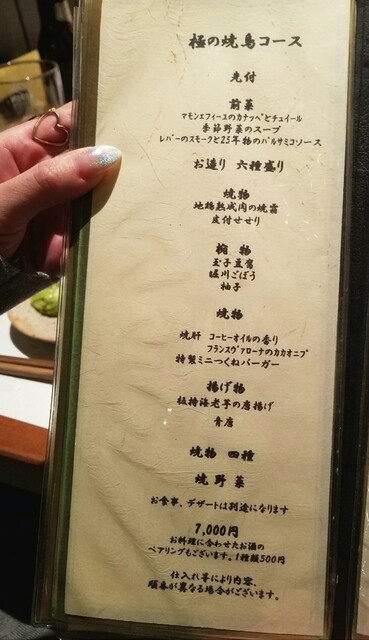 極の焼鳥コース
先付
前菜
マモンエフィーユのカナッペとチュイール
季節野菜のスープ
レバーのスモークと25年物のバルサミコソース
お造り 六種盛り
焼物
地鶏熟成肉の焼霜
皮付せせり
椀物
玉子豆腐
堀川ごぼう
柚子
焼物
焼肝 コーヒーオイルの香り
フランスヴァローナのカカオニブ
特製ミニつくねバーガー
揚げ物
板持海老芋の唐揚げ
青唐
焼物 四種
焼野菜
お食事、デザートは別途になります
7,000円
お料理に合わせたお酒の
ペアリングもございます。1種類500円
仕入れ等により内容、
順番が異なる場合がございます。